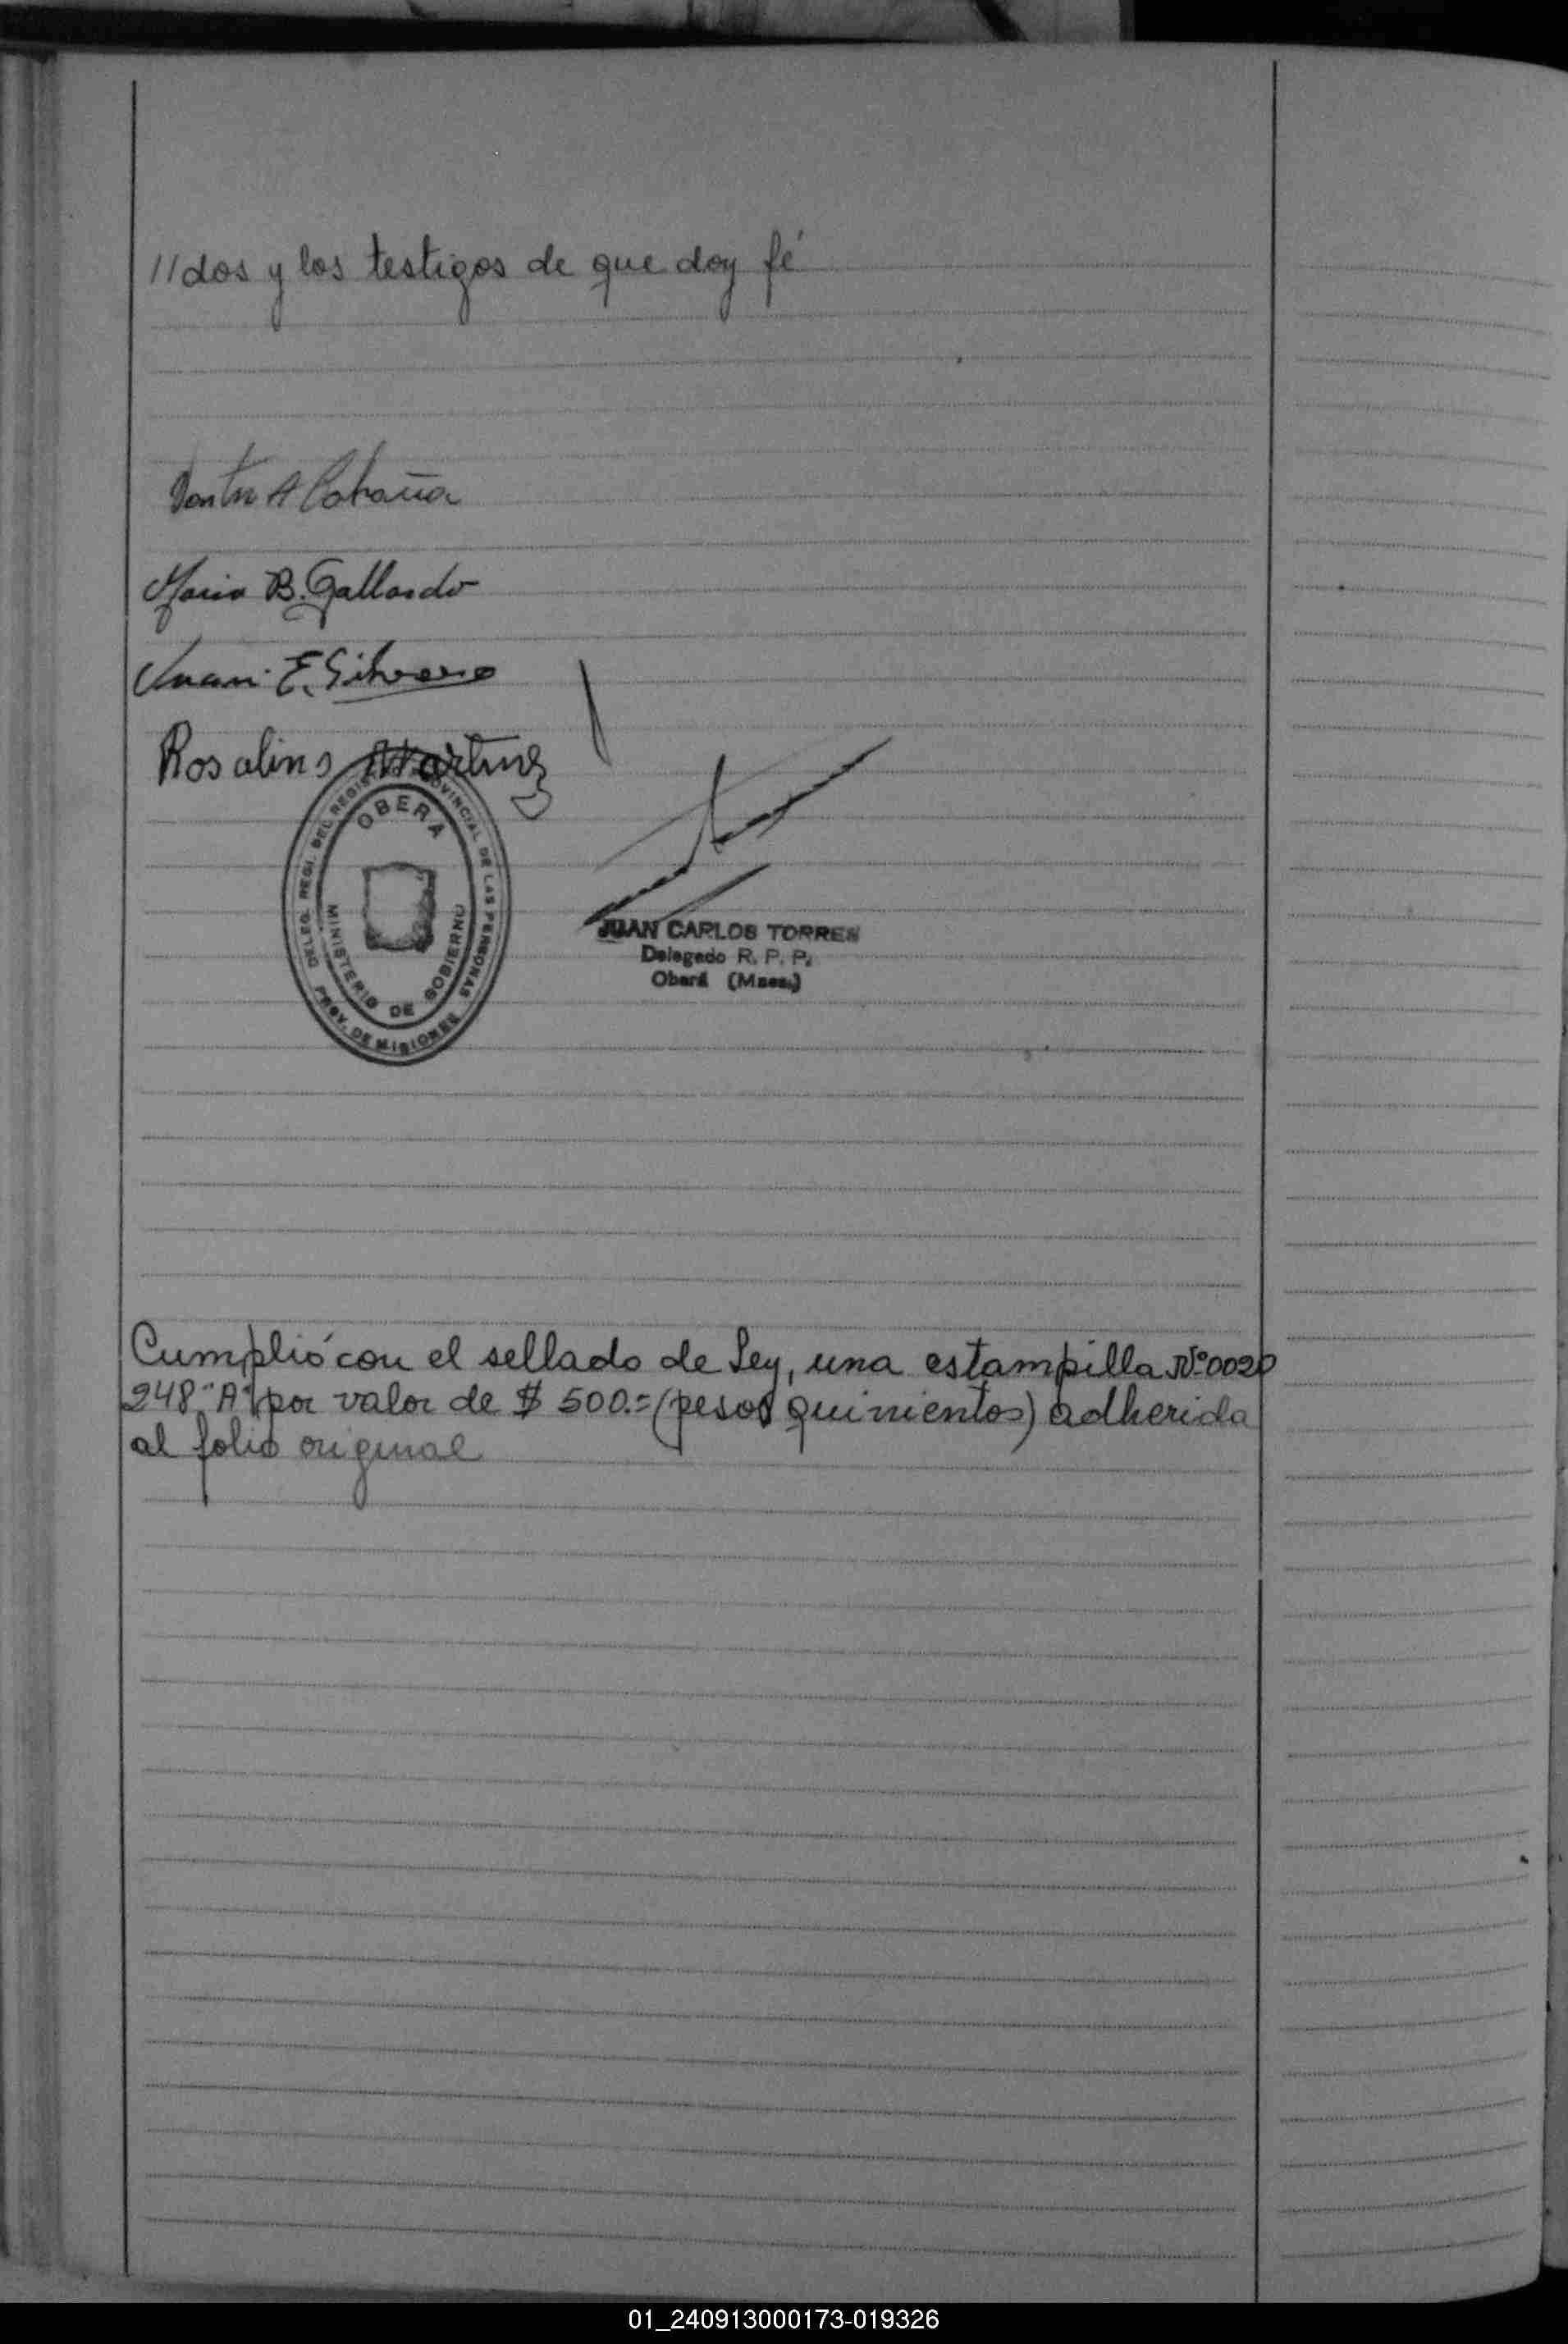 //dos y los testigos de que doy fé
Maria B. Gallardo
Juan E. Silvero
Rosalino Martinez
OBERA
MINISTERIO DE GOBIERNO
DELEG. REGI. DEL REGISTRO PROVINCIAL DE LAS PERSONAS
PROV. DE MISIONES
JUAN CARLOS TORRES
Delegado R. P. P.
Oberá (Mnes.)
Cumplió con el sellado de Ley, una estampilla Nº 0020
248 "A" por valor de $ 500.= (pesos quinientos) adherida
al folio original
01_240913000173-019326